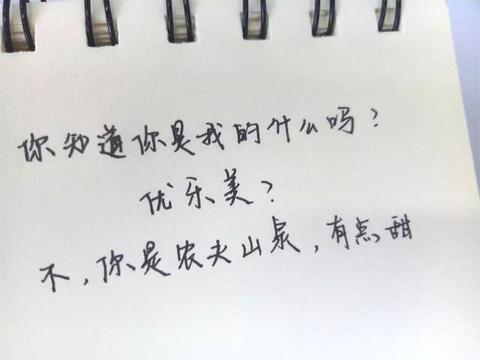 你知道你是我的什么吗?
优乐美?
不,你是农夫山泉,有点甜